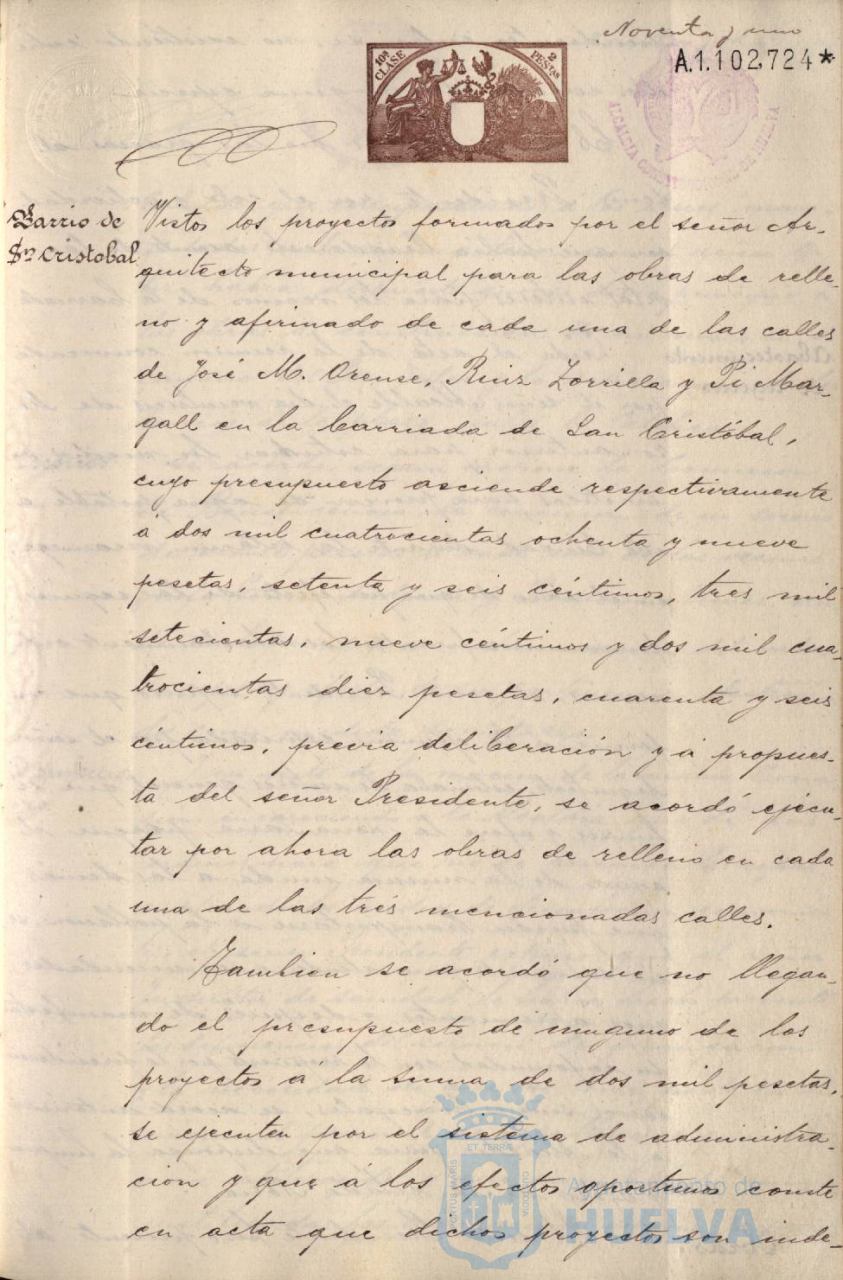 Noventa y uno
A.1.102,724*
10ª CLASE
2 PESTAS
ALCALDIA CONSTITUCIONAL DE HUELVA
Barrio de
Sn Cristobal
Vistos los proyectos formados por el señor Ar-
quitecto municipal para las obras de relle-
no y afirmado de cada una de las calles
de José M. Orense, Ruiz Zorrilla y Pi Mar-
gall en la barriada de San Cristóbal,
cuyo presupuesto asciende respectivamente
á dos mil cuatrocientas ochenta y nueve
pesetas, setenta y seis céntimos, tres mil
setecientas, nueve céntimos y dos mil cua-
trocientas diez pesetas, cuarenta y seis
céntimos, prévia deliberación y á propues-
ta del señor Presidente, se acordó ejecu-
tar por ahora las obras de relleno en cada
una de las trés mencionadas calles.
Tambien se acordó que no llegan-
do el presupuesto de ninguno de los
proyectos á la suma de dos mil pesetas,
se ejecuten por el sistema de administra-
cion y que á los efectos oportunos conste
en acta que dichos proyectos son inde-
ET TERRA
PORTUS MARIS
CUSTODIA
Ayuntamiento de
HUELVA